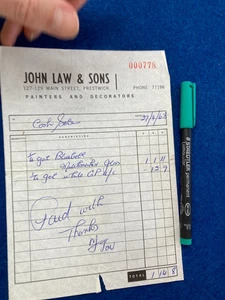 000778
JOHN LAW & SONS
127-129 MAIN STREET, PRESTWICK PHONE 77286
PAINTERS AND DECORATORS
Cash Sale 27/9/63
To gal Bluebell
1 1 11
To gal white G.P. U/c 12 9
Paid with
Thanks
TOTAL 1 14 8
STAEDTLER permanent